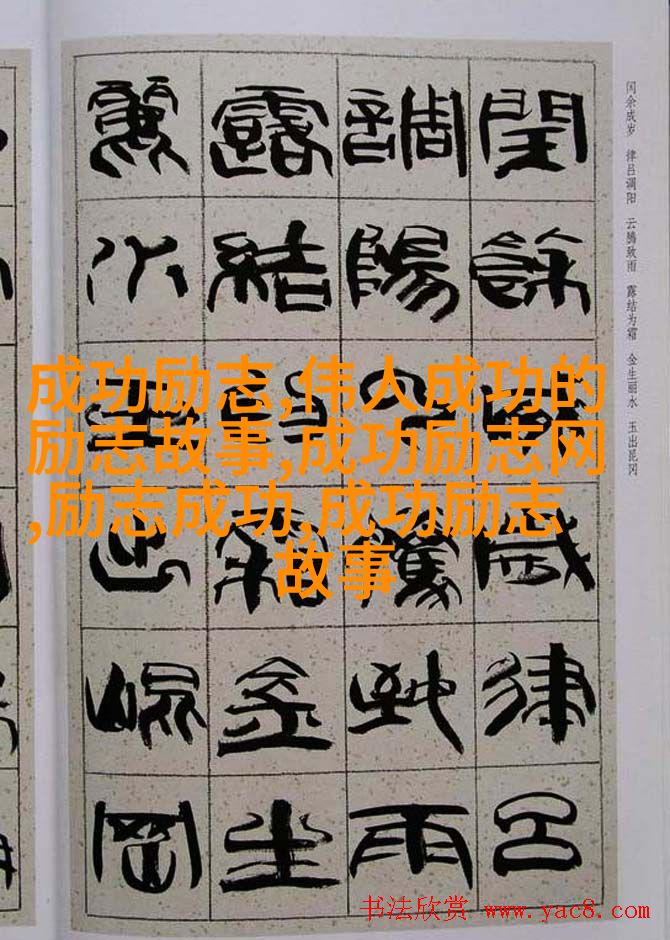 闰余成岁 律吕调阳 云腾致雨 露结为霜 金生丽水 玉出昆冈
閏餘成歲律呂
調陽云騰致雨
露結為霜金生
麗水玉出崐岡
成功励志,伟人成功的
励志故事,成功励志网
,励志成功,成功励志
故事
书法欣赏 www.yac8.com